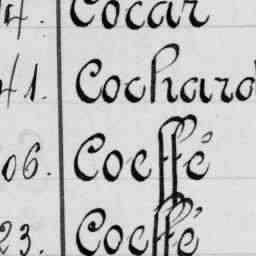 4. Cocar
41. Cochard
06. Coeffé
23. Coeffé